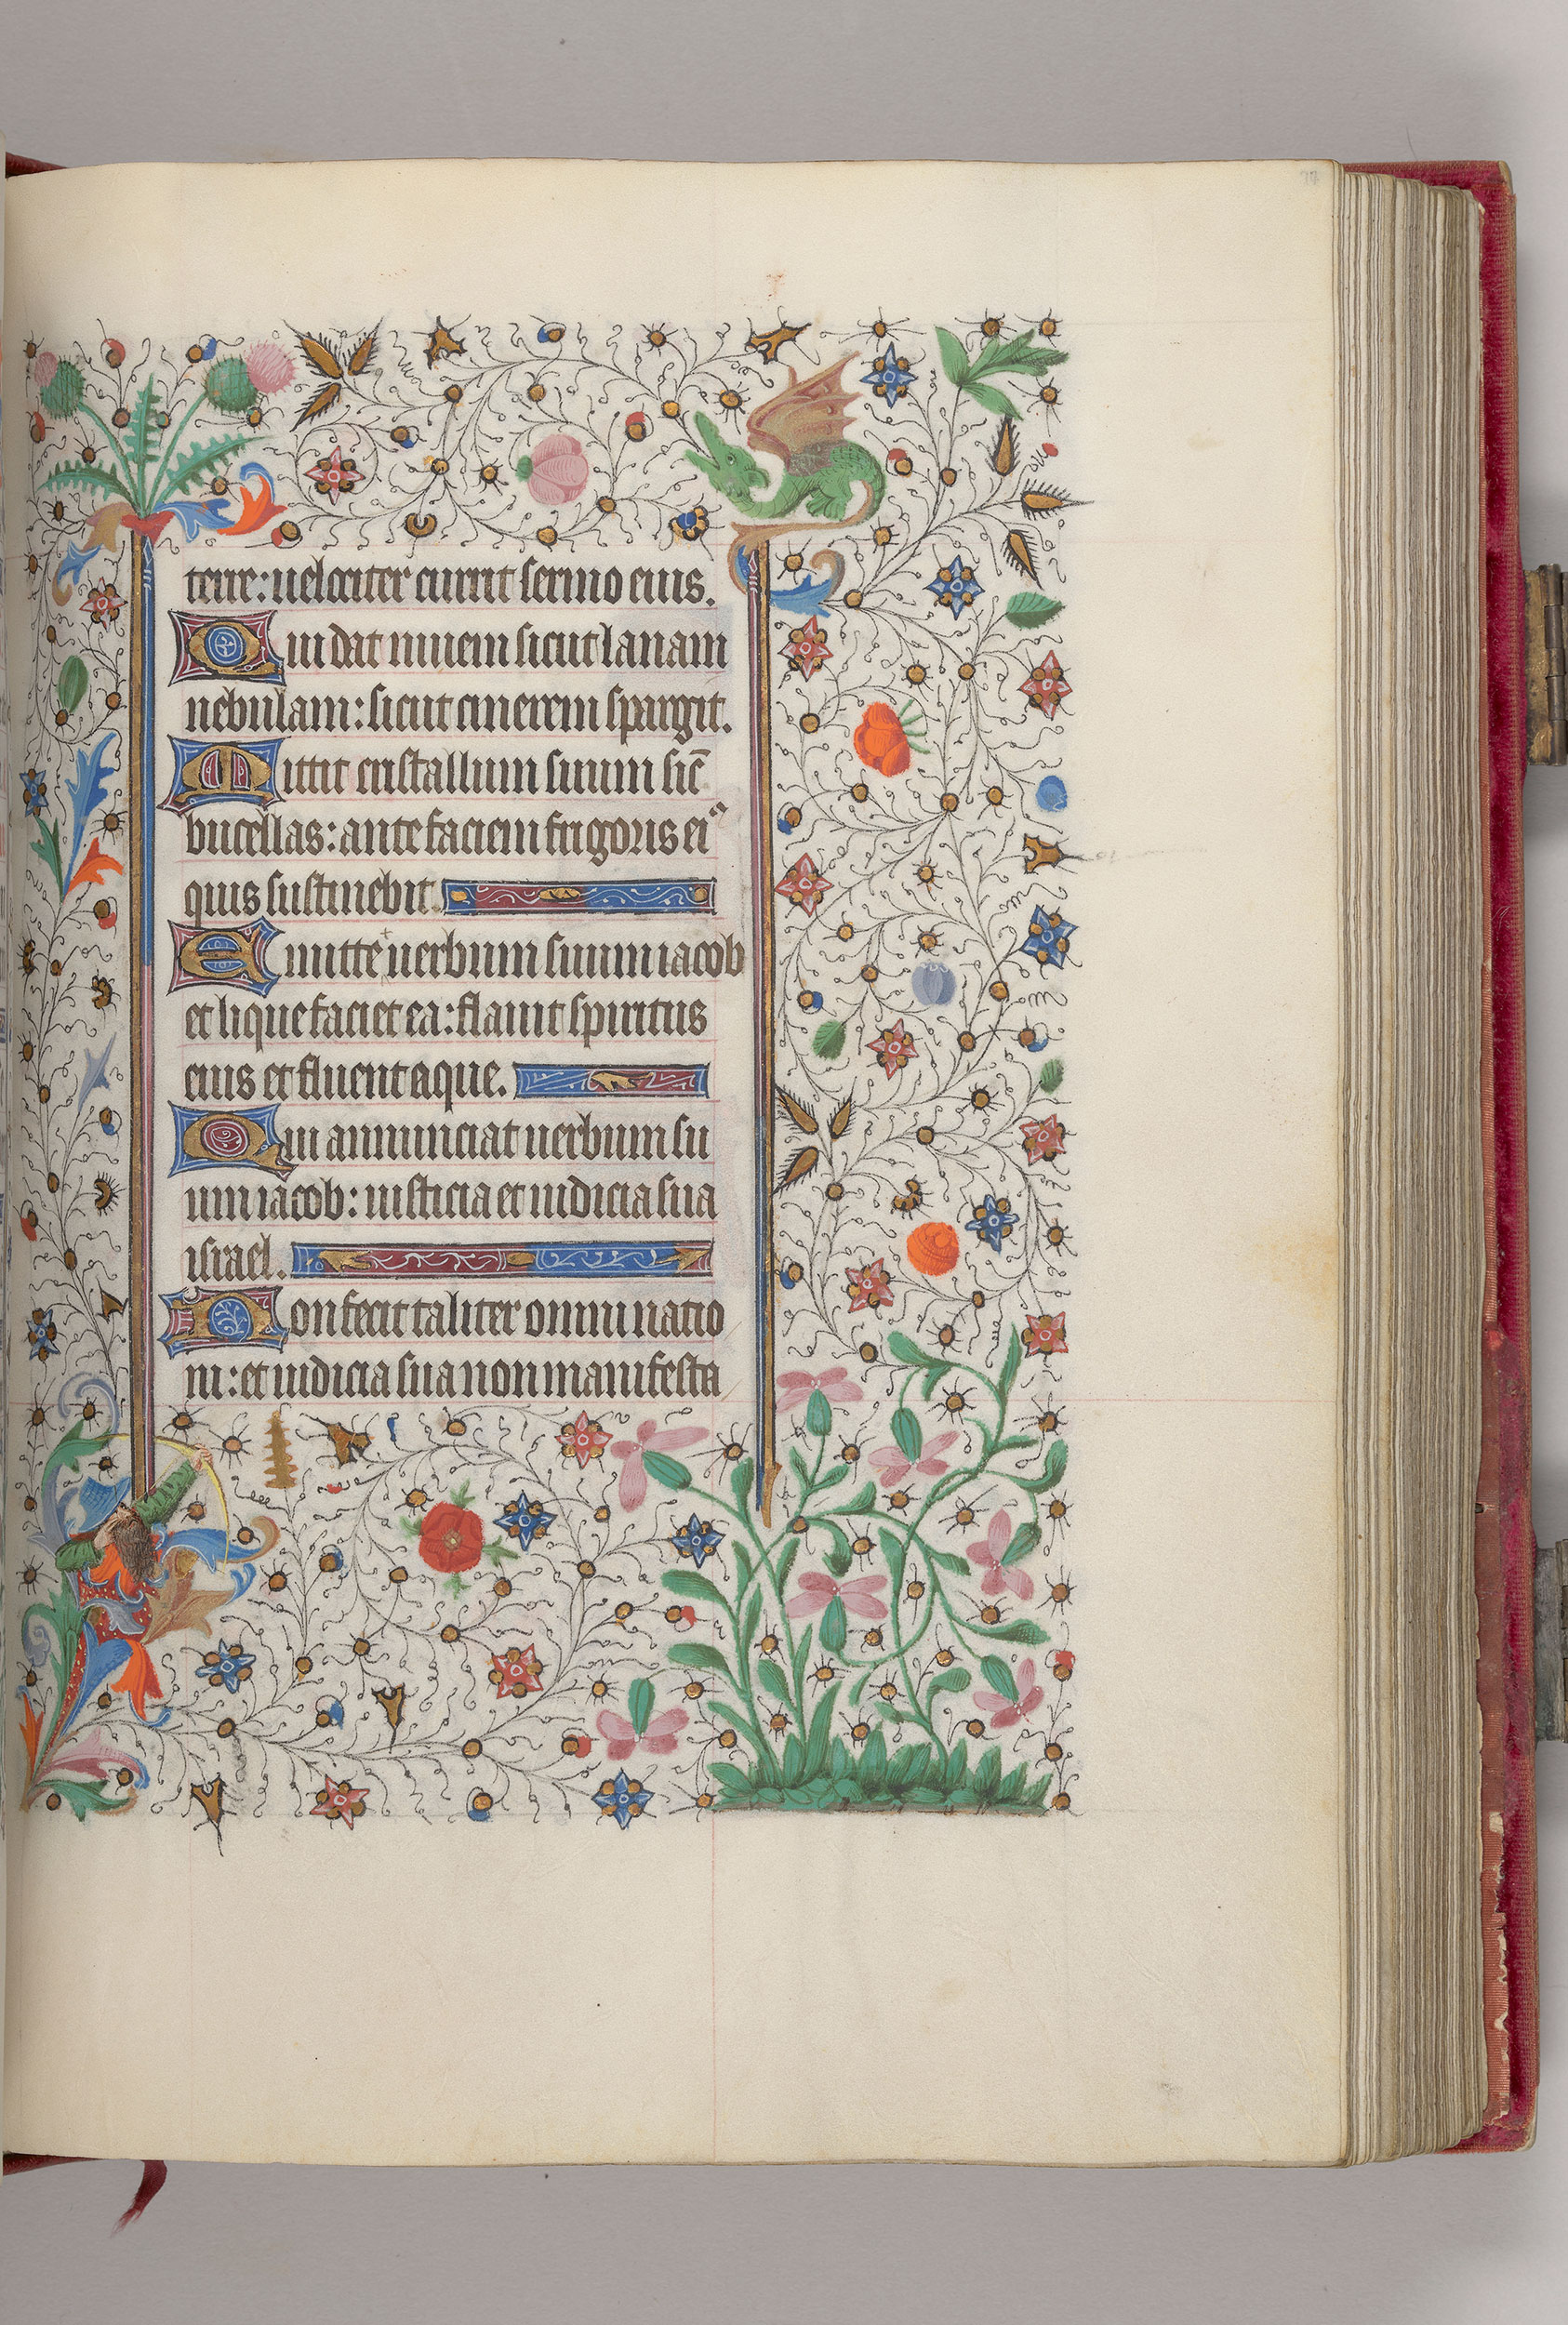 37
terre: uelociter currit sermo eius.
Qui dat niuem sicut lanam
nebulam: sicut cinerem spargit.
Mittit cristallum suum sic̄
bucellas: ante faciem frigoris eiꝰ
quis sustinebit.
Emitte uerbum suum iacob
et liquefaciet ea: flauit spiritus
eius et fluent aque.
Qui annunciat uerbum su
um iacob: iusticia et iudicia sua
israel.
Non fecit taliter omni natio
ni: et iudicia sua non manifesta